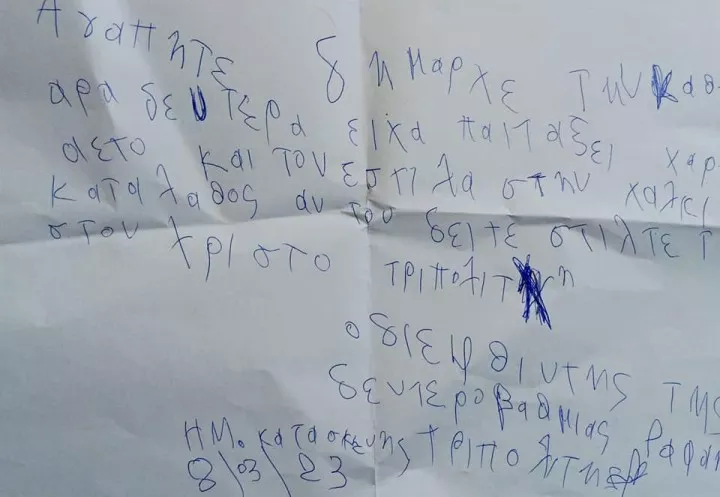 Αγαπητε δημαρχε την καθ
αρα δευτερα ειχα παιταξει χαρ
αετο και τον εστιλα στην χαλκι
κατα λαθος αν τον δειτε στιλτε τ
στον χριστο τριπολιτη
ο διεφθιντης της
δευτεροβαθμιας
ΗΜ. κατασκευης τριπο λιτης ραφαη
8/03/23